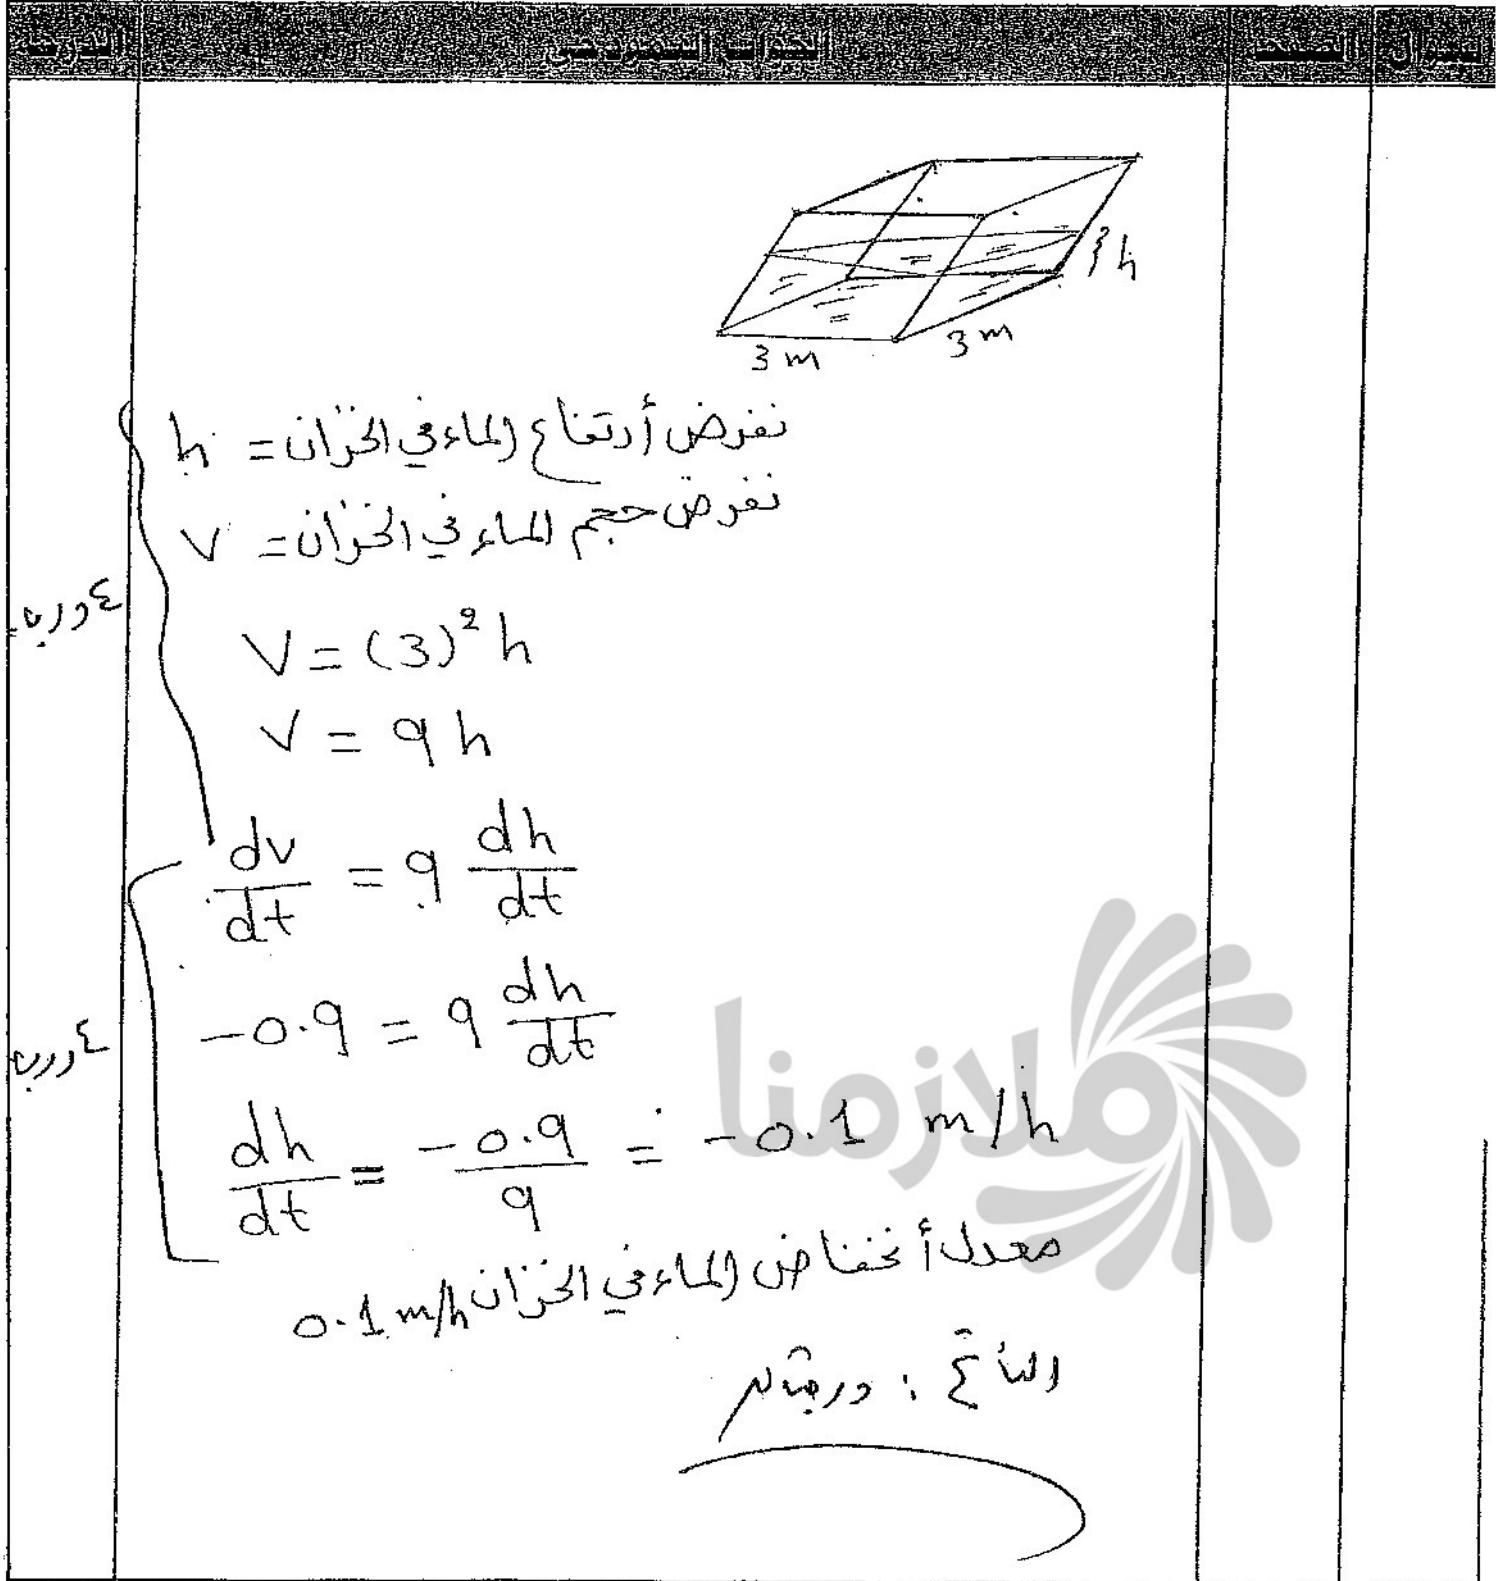 السؤال الصفحة الجواب النموذجي الدرجة
h
3 m 3 m
نفرض أرتفاع الماء في الخزان = h
نفرض حجم الماء في الخزان = V
V = (3)² h
V = 9 h
dv/dt = 9 dh/dt
-0.9 = 9 dh/dt
dh/dt = -0.9/9 = -0.1 m/h
معدل أنخفاض الماء في الخزان 0.1 m/h
ملازمنا